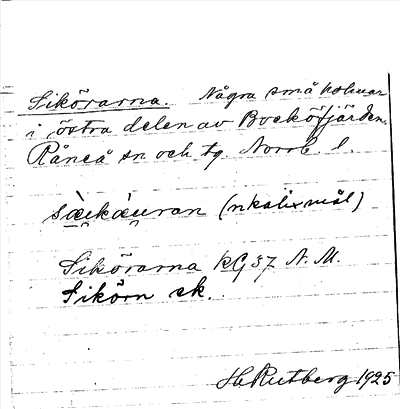 Sikörarna. Några små holmar
i östra delen av Bocköfjärden.
Råneå sn och tg. Norrb. l.
(nkalixmål)
Sikörarna KG37 N. M.
Sikörn ek.
H. Rutberg 1925